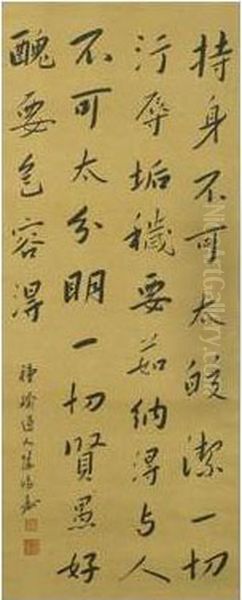 持身不可太皎潔一切
汙辱垢穢要茹納得与人
不可太分明一切賢愚好
醜要包容得
種榆道人陳鴻壽